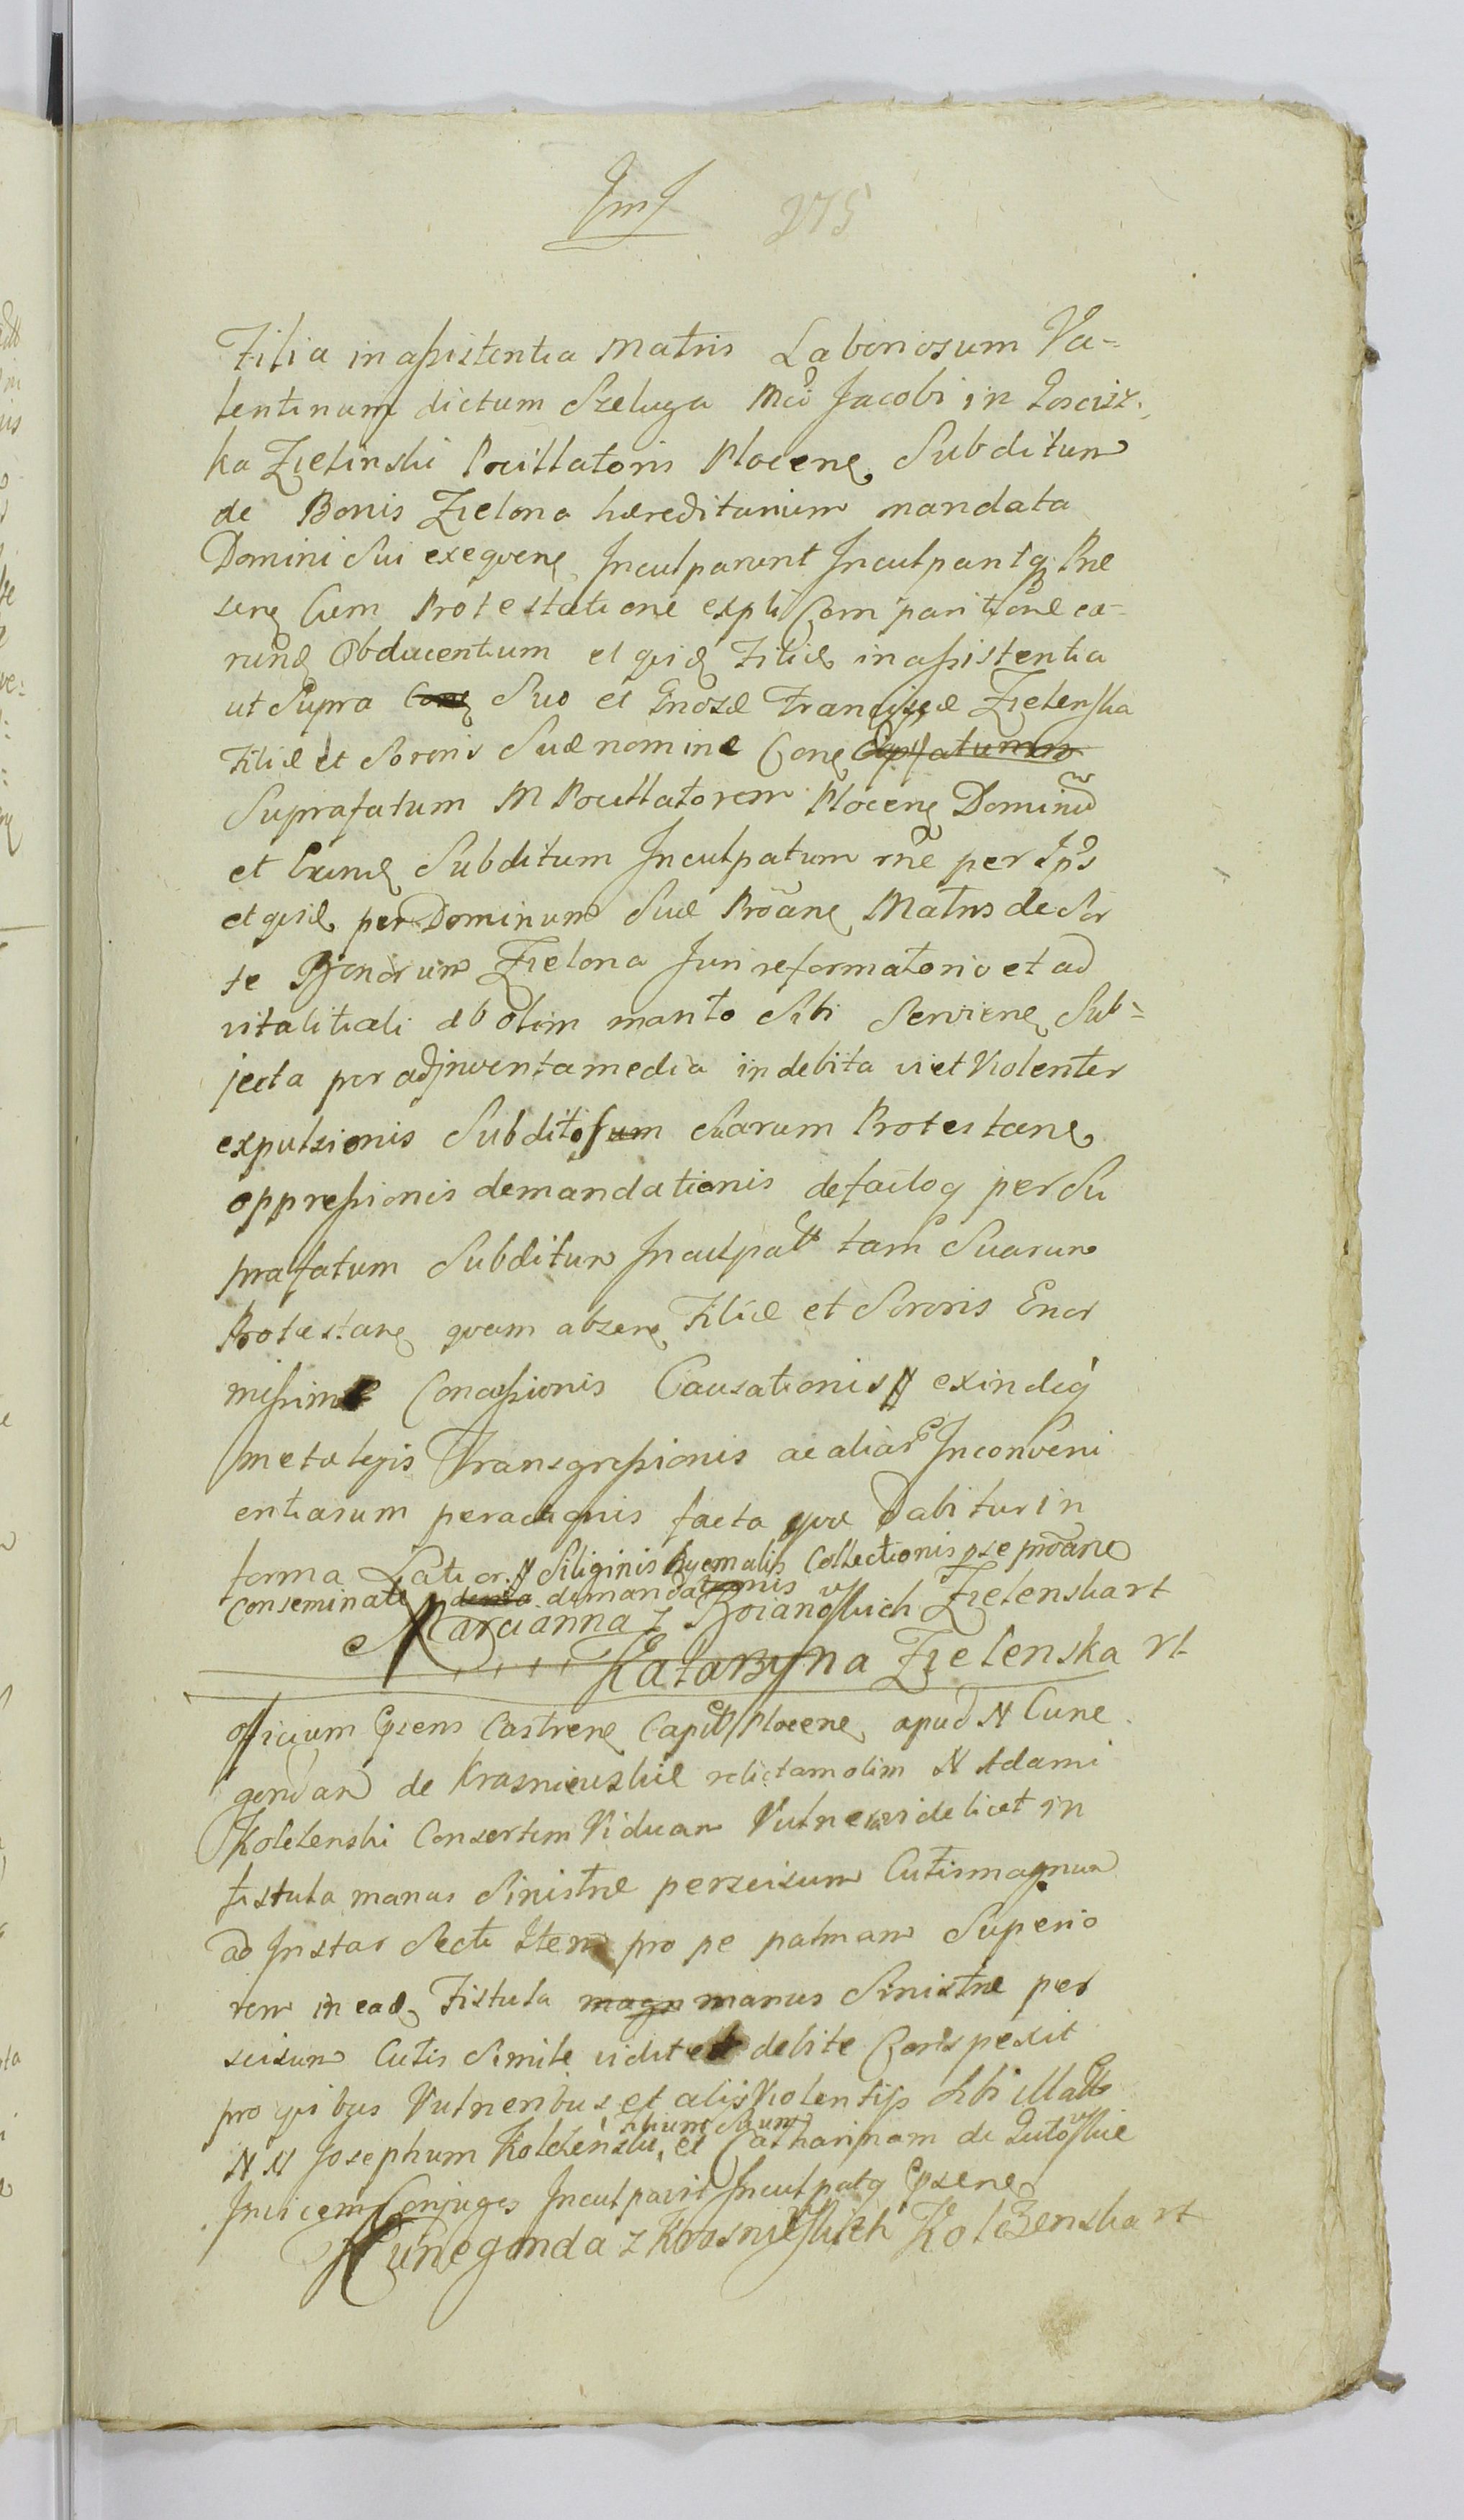 275
Filia in assistentia Matris Laboriosum Va-
lentinum dictum Szeluga Mci Jacobi in
ka Zielinski Pocillatoris Plocen Subditum
de Bonis Zielona hæreditarium mandata
Domini Sui exequen Inculparunt Inculpantq Præ
sen Cum Protestatione expli Comparitione ea-
rund Obducentium et quid Filiæ in assistentia
ut Supra Suo et Gnosæ Franciscæ Zielenska
Filiæ et Sororis Suæ nomine Con
Suprafatum M Pocillatorem Plocen Dominu
et Eund Subditum Inculpatum rne per Ips
et quid per Dominum Suæ Proan Matris de Sor
te Bonorum Zielona Juri reformatorio et ad
vitalitiali ab olim marito Sibi Servien Sub=
jecta per adjinventa media indebita vi et Violenter
expulsionis Subditorum Suarum Protestan
oppressionis demandationis de factoq per Su
prafatum Subditum Inculpatt tam Suarum
Protestan quam absen Filiæ et Sororis Enor
missimæ Concussionis Causationis N exindeq
metæ legis Transgressionis ac aliar Inconveni
entiarum peractionis facta quæ Dabitur in
forma Latior. N Siliginis hyemalis Collectionis pse proane
Conseminati demandationis
Marcianna z Boianowskich Zielenska rt
Katarzyna Zielenska rt
Officium Psens Castren Capitt Plocen apud N Cune
gendam de Krasniewskie relictam olim N Adami
Kolczenski Consortem Viduam Vulnera videlicet in
fistula manus Sinistræ perscisum Cutis magnum
ad Instar Secti Item prope palmam Superio
rem in ead Fistula magn manus Sinistræ per
scisum Cutis Simile vidit et debite Conspexit
pro quibus Vulneribus et alis Violentijs Sibi Illatts
filium Suum
N N Josephum Kolczenski, et Catharinam de Lutowskie
Invicem Conjuges Inculpavit Inculpatq Psen
Kunegonda z Krasniewskich Kolczenska rt